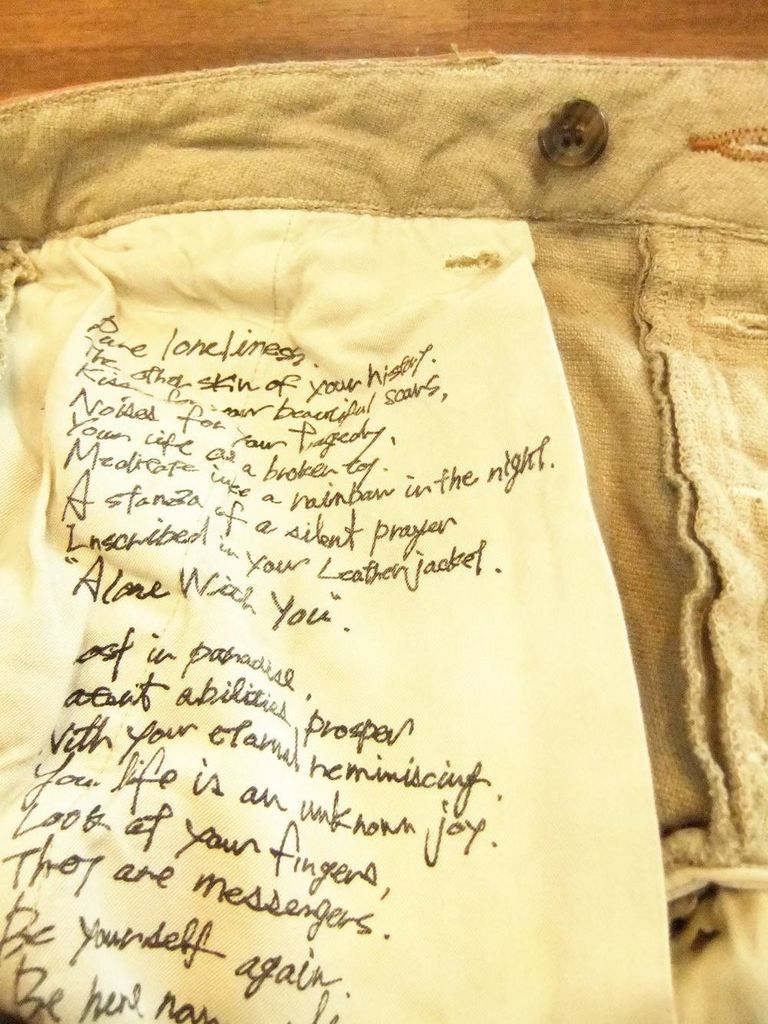 Pure loneliness.
The other skin of your history.
Kiss for your beautiful scars,
Noises for your tragedy,
Your life as a broken toy.
Meditate like a rainbow in the night.
A stanza of a silent prayer
Inscribed in your Leather jacket.
"Alone With You".
ost in paradise,
atent abilities prosper
With your eternal reminiscing.
You life is an unknown joy.
Look at your fingers,
They are messengers.
Be yourself again
Be here now